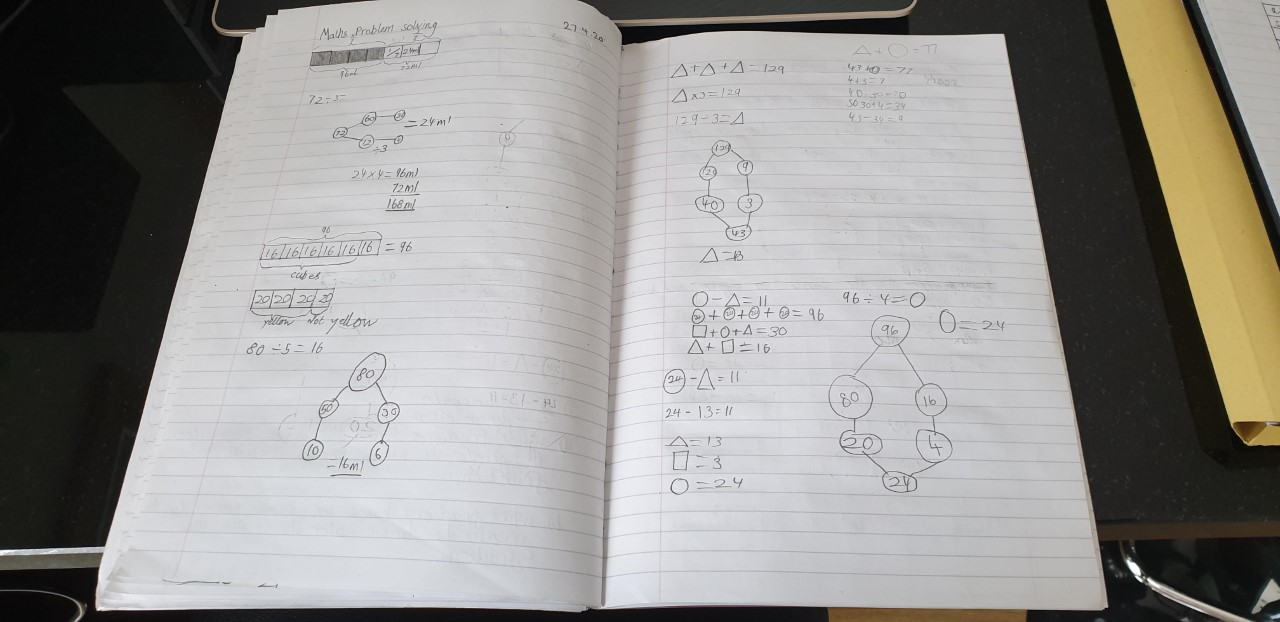 Maths Problem solving
27.4.20
24ml
96ml
72ml
72÷3=
72
60
12
÷3
=24ml
24×4=96ml
72ml
168ml
96
16 16 16 16 16 16 = 96
cubes
20 20 20 20
yellow Not yellow
80÷5=16
80
50
30
10
6
=16ml
△+△+△=129
△×3=129
129÷3=△
129
120
9
40
3
43
△+○=77
4+3=7
○-△=11
24+24+24+24=96
□+○+△=30
△+□=16
24-△=11
24-13=11
△=13
□=3
○=24
96÷4=○
○=24
96
80
16
20
4
24